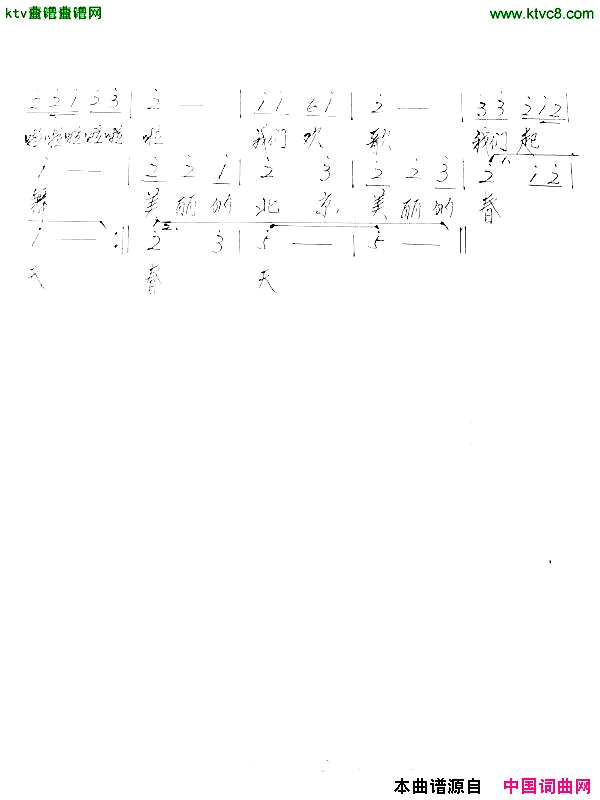 ktv盘谱盘谱网 www.ktvc8.com
2̇ 2̇ 1̇ 2̇ 3̇ | 2̇ — | 1̇ 1̇ 6 1̇ | 2̇ — | 3̇ 3̇ 2̇ 1̇ 2̇ |
啦啦啦啦啦 啦 我们 欢 歌 我们 起
1̇ — — | 2̇ 2̇ 1̇ | 2̇ 3̇ | 2̇ 2̇ 3̇ | 2̇ 1̇ 2̇ |
舞 美 丽 的 北 京, 美 丽 的 春
1̇ — :‖ 2̇ 3̇ | 5̇ — — | 5̇ — — ‖
天 春 天
本曲谱源自 中国词曲网